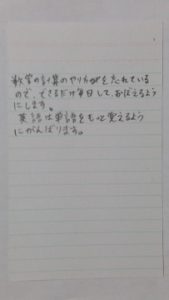 数学の計算のやり方がを忘れている
ので、できるだけ毎日して、おぼえるよう
にします。
英語は単語をもっと覚えるよう
にがんばります。